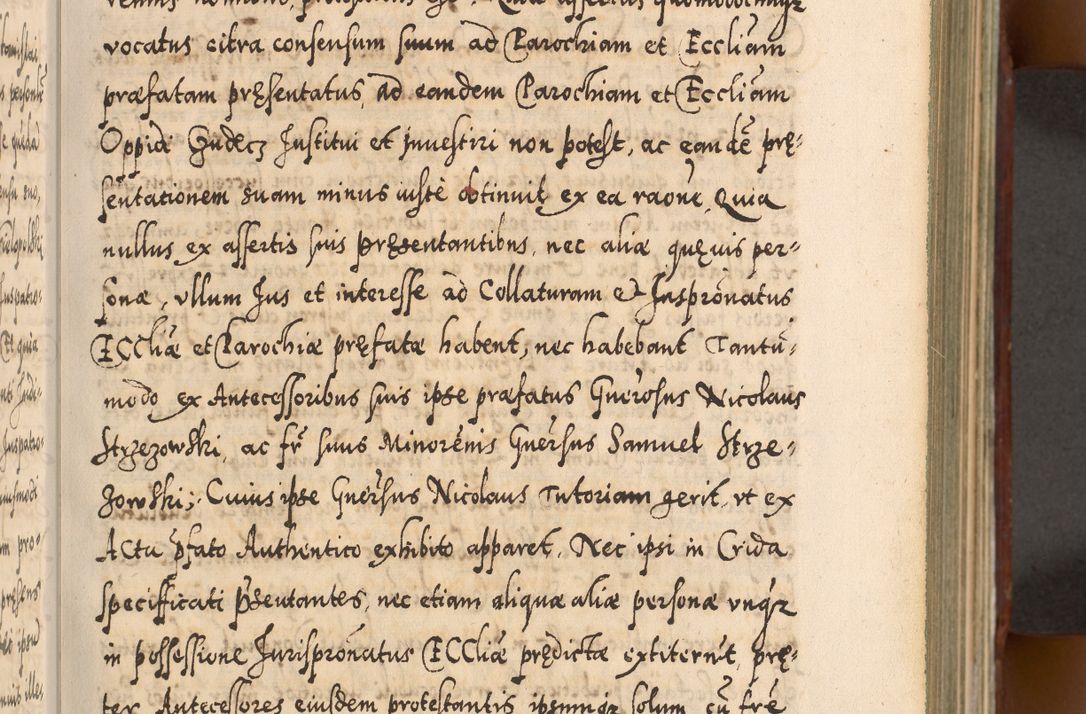 vocatus citra consensum suum ad Parochiam et Eccliam
præfatam pręsentatus, ad eandem Parochiam et Eccliam
Oppidi Zudecz Institui et investiri non potest, ac eandē prę-
sentationem suam minus iustè obtinuit ex ea raone, Quia
nullus ex assertis suis pręsentantibus, nec aliæ quęvis per-
sonæ, vllum Jus et interesse ad Collaturam et Juspronatus
Eccliæ et Parochiæ pręfatæ habent, nec habebant Tantū-
modo ex Antecessoribus suis ipse præfatus Gnerosus Nicolaus
Strzezowski, ac fr suus Minorenis Gnersus Samuel Strze-
zowski; Cuius ipse Gnersus Nicolaus Tutoriam gerit, vt ex
Actu pfato Authentico exhibito apparet. Nec ipsi in Crida
specifficati pŝentantes, nec etiam aliquæ aliæ personæ vnqz
in possessione Jurispronatus Eccliæ prędictæ extiterūt, prę-
ter Antecessores eiusdem protestantis ipsumqz solum cū fre